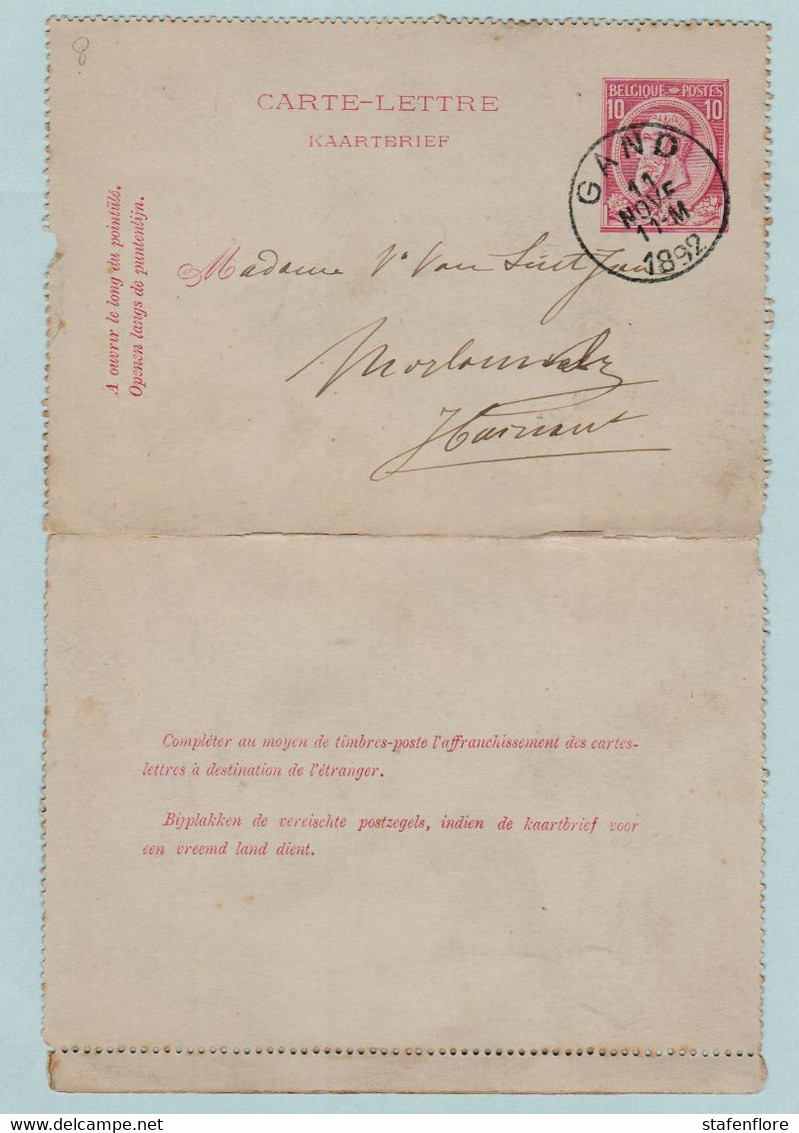 8
CARTE-LETTRE
KAARTBRIEF
BELGIQUE POSTES
10 10
GAND
11
NOVE
11-M
1892
A ouvrir le long du pointillé.
Openen langs de puntenlijn.
Madame Ve Van Sint Jan
Morlanwelz
Hainaut
Compléter au moyen de timbres-poste l'affranchissement des cartes-
lettres à destination de l'étranger.
Bijplakken de vereischte postzegels, indien de kaartbrief voor
een vreemd land dient.
© www.delcampe.net
stafenflore